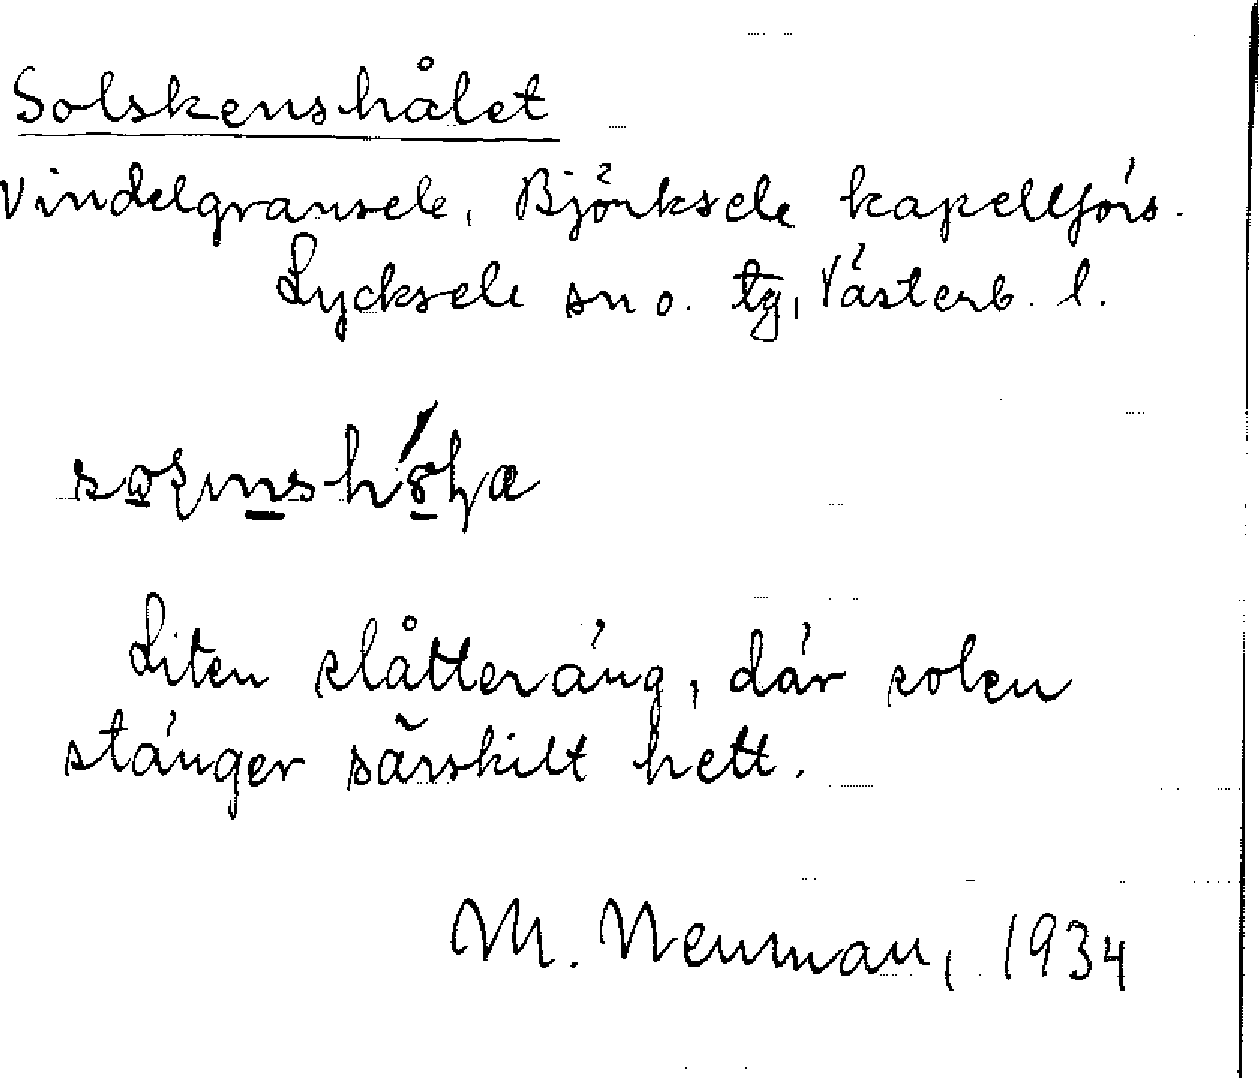 Solskenshålet
Vindelgransele, Björksele kapellförs.
Lycksele sn o. tg, Västerb. l.
Liten slåtteräng, där solen
stänger särskilt hett.
M. Neuman, 1934